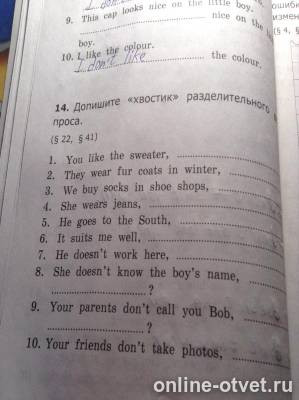 I don't
9. This cap looks nice on the little boy.
nice on the
boy.
10. I like the colour.
I don't like the colour.
14. Допишите «хвостик» разделительного
проса.
(§ 22, § 41)
1. You like the sweater,
2. They wear fur coats in winter,
3. We buy socks in shoe shops,
4. She wears jeans,
5. He goes to the South,
6. It suits me well,
7. He doesn't work here,
8. She doesn't know the boy's name,
?
9. Your parents don't call you Bob,
?
10. Your friends don't take photos,
online-otvet.ru